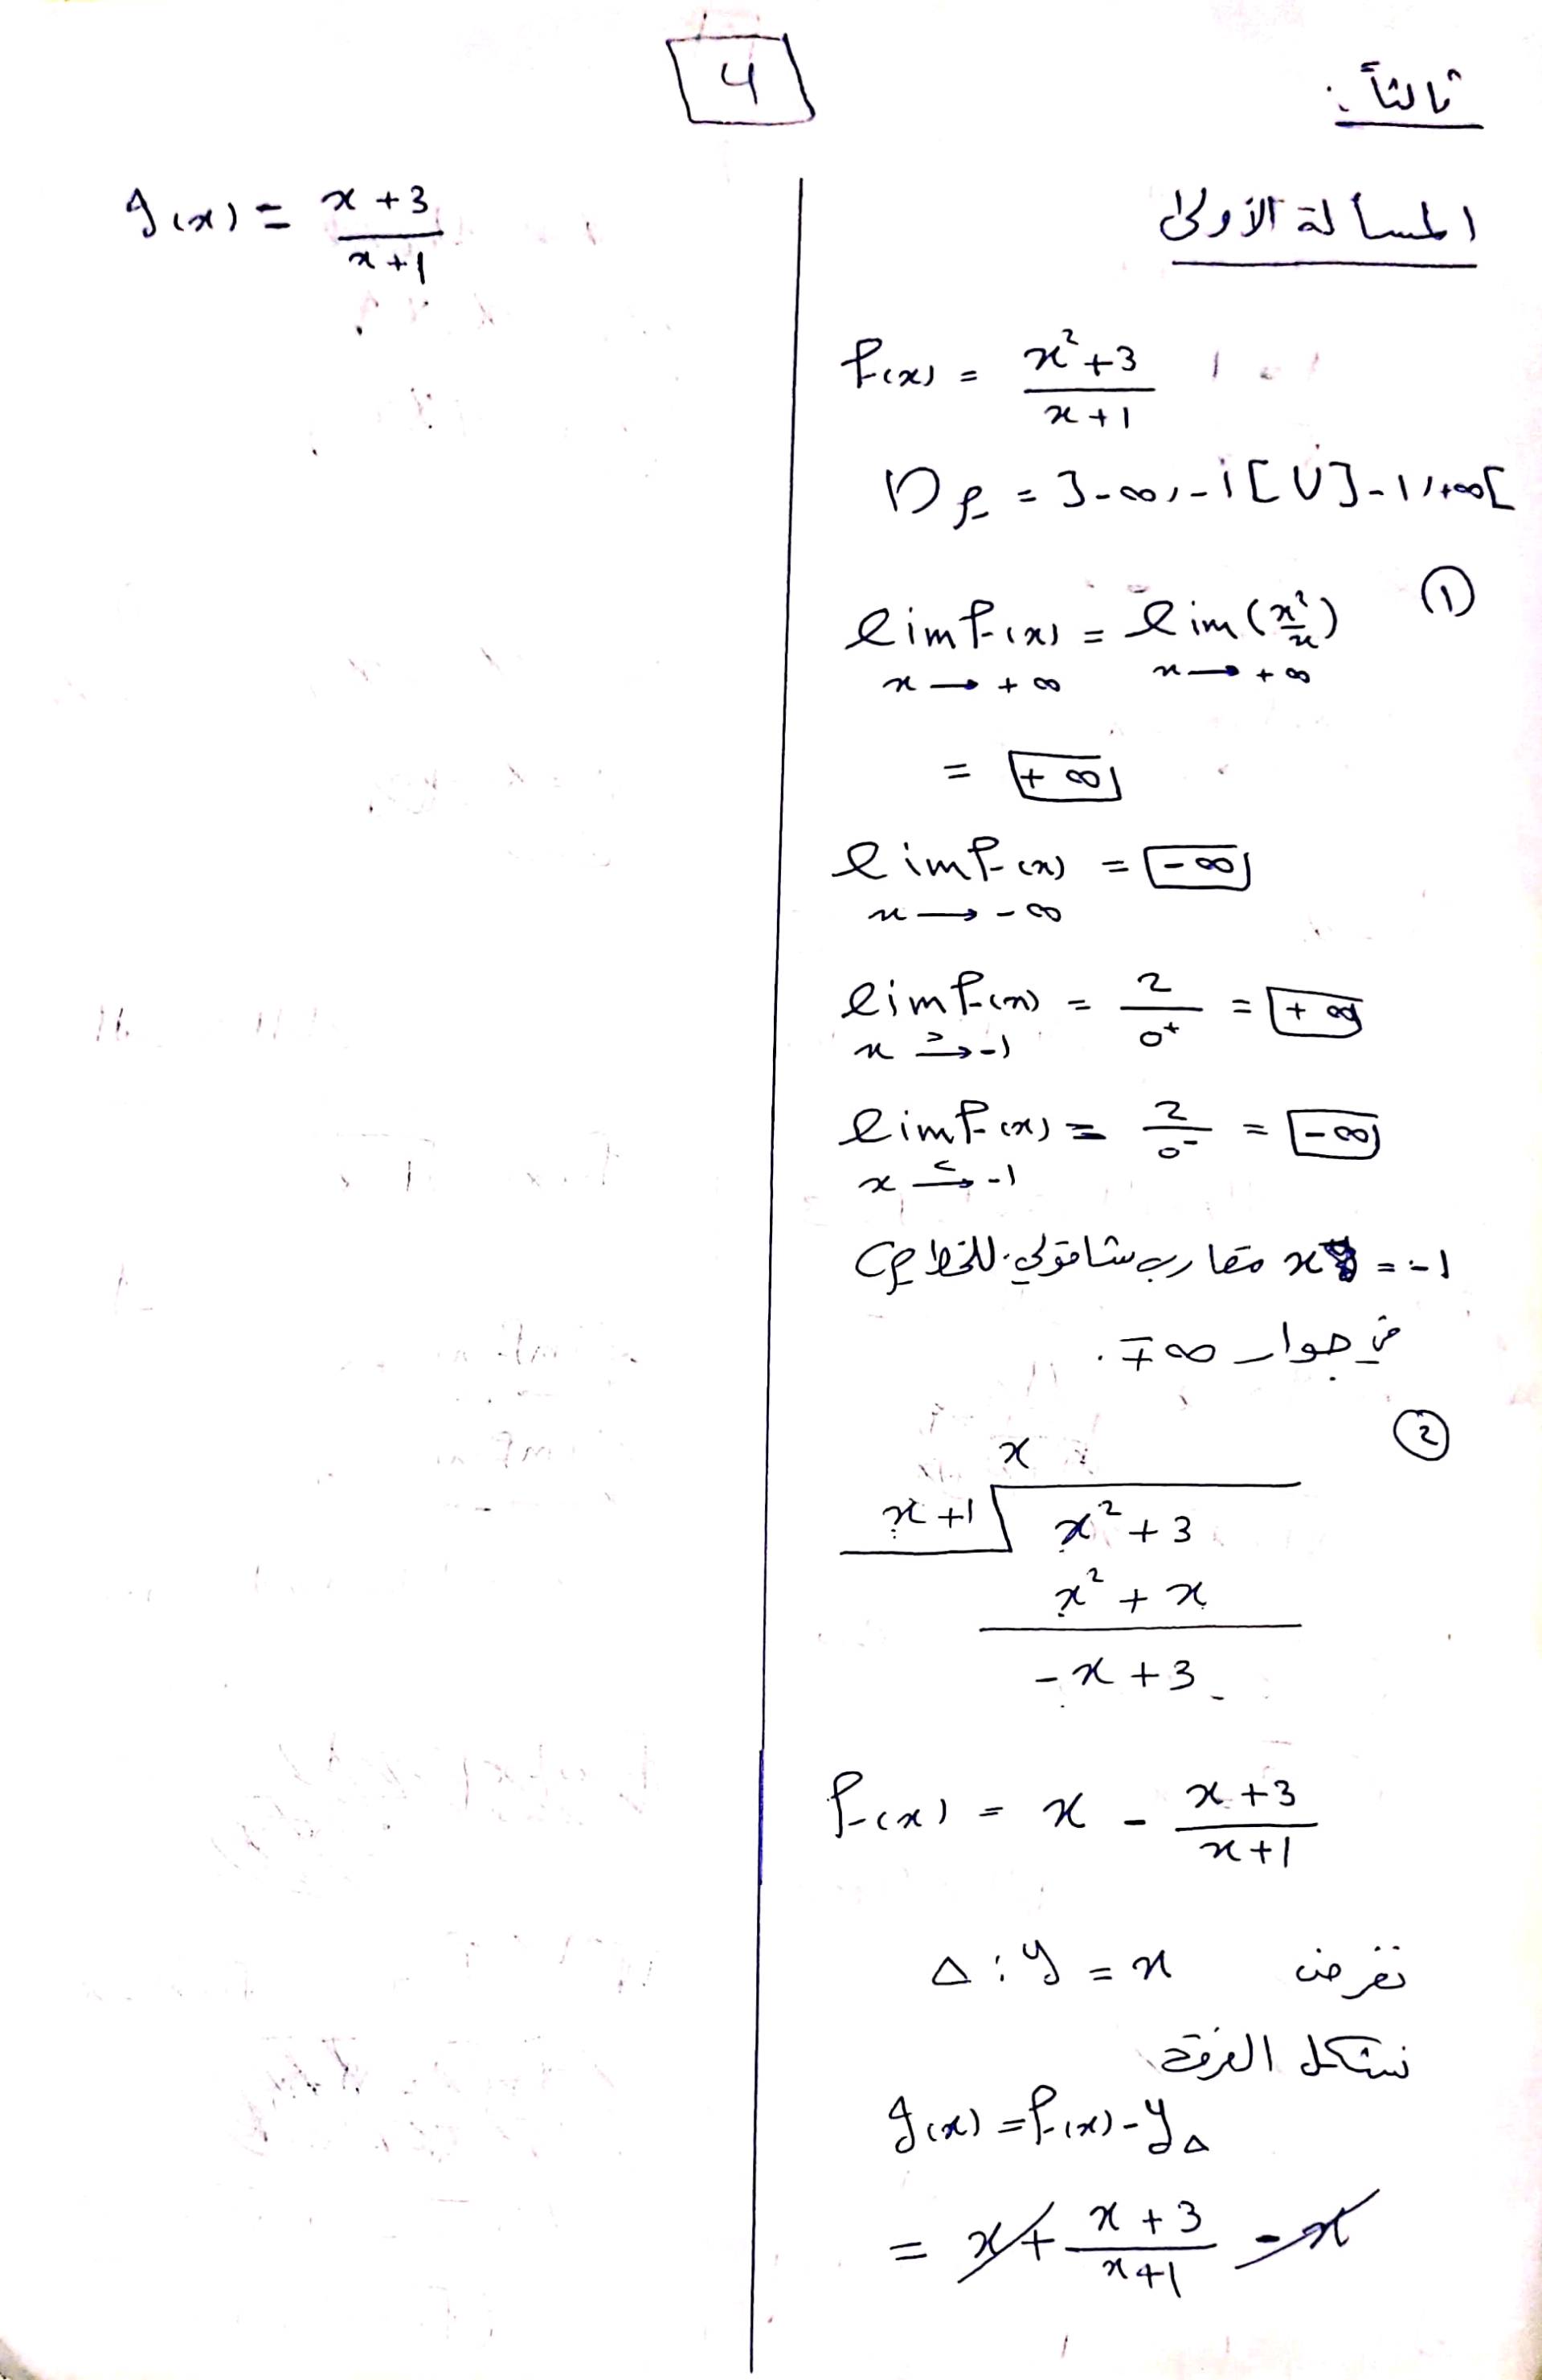 4
ثالثاً:
المسألة الأولى
f(x) = \frac{x^2+3}{x+1}
D_f = ]-∞, -1[ U ]-1, +∞[
① \lim_{x \to +∞} f(x) = \lim_{x \to +∞} (\frac{x^2}{x})
= +∞
\lim_{x \to -∞} f(x) = -∞
\lim_{x \overset{>}{\to} -1} f(x) = \frac{2}{0^+} = +∞
\lim_{x \overset{<}{\to} -1} f(x) = \frac{2}{0^-} = -∞
x = -1 مقارب شاقولي للخط C_f
في جوار ∓∞.
②
x
x+1
x^2+3
x^2+x
-x+3
f(x) = x - \frac{x+3}{x+1}
نفرض Δ: y = x
نشكل الفرق
g(x) = f(x) - y_Δ
= x + \frac{x+3}{x+1} - x
g(x) = \frac{x+3}{x+1}